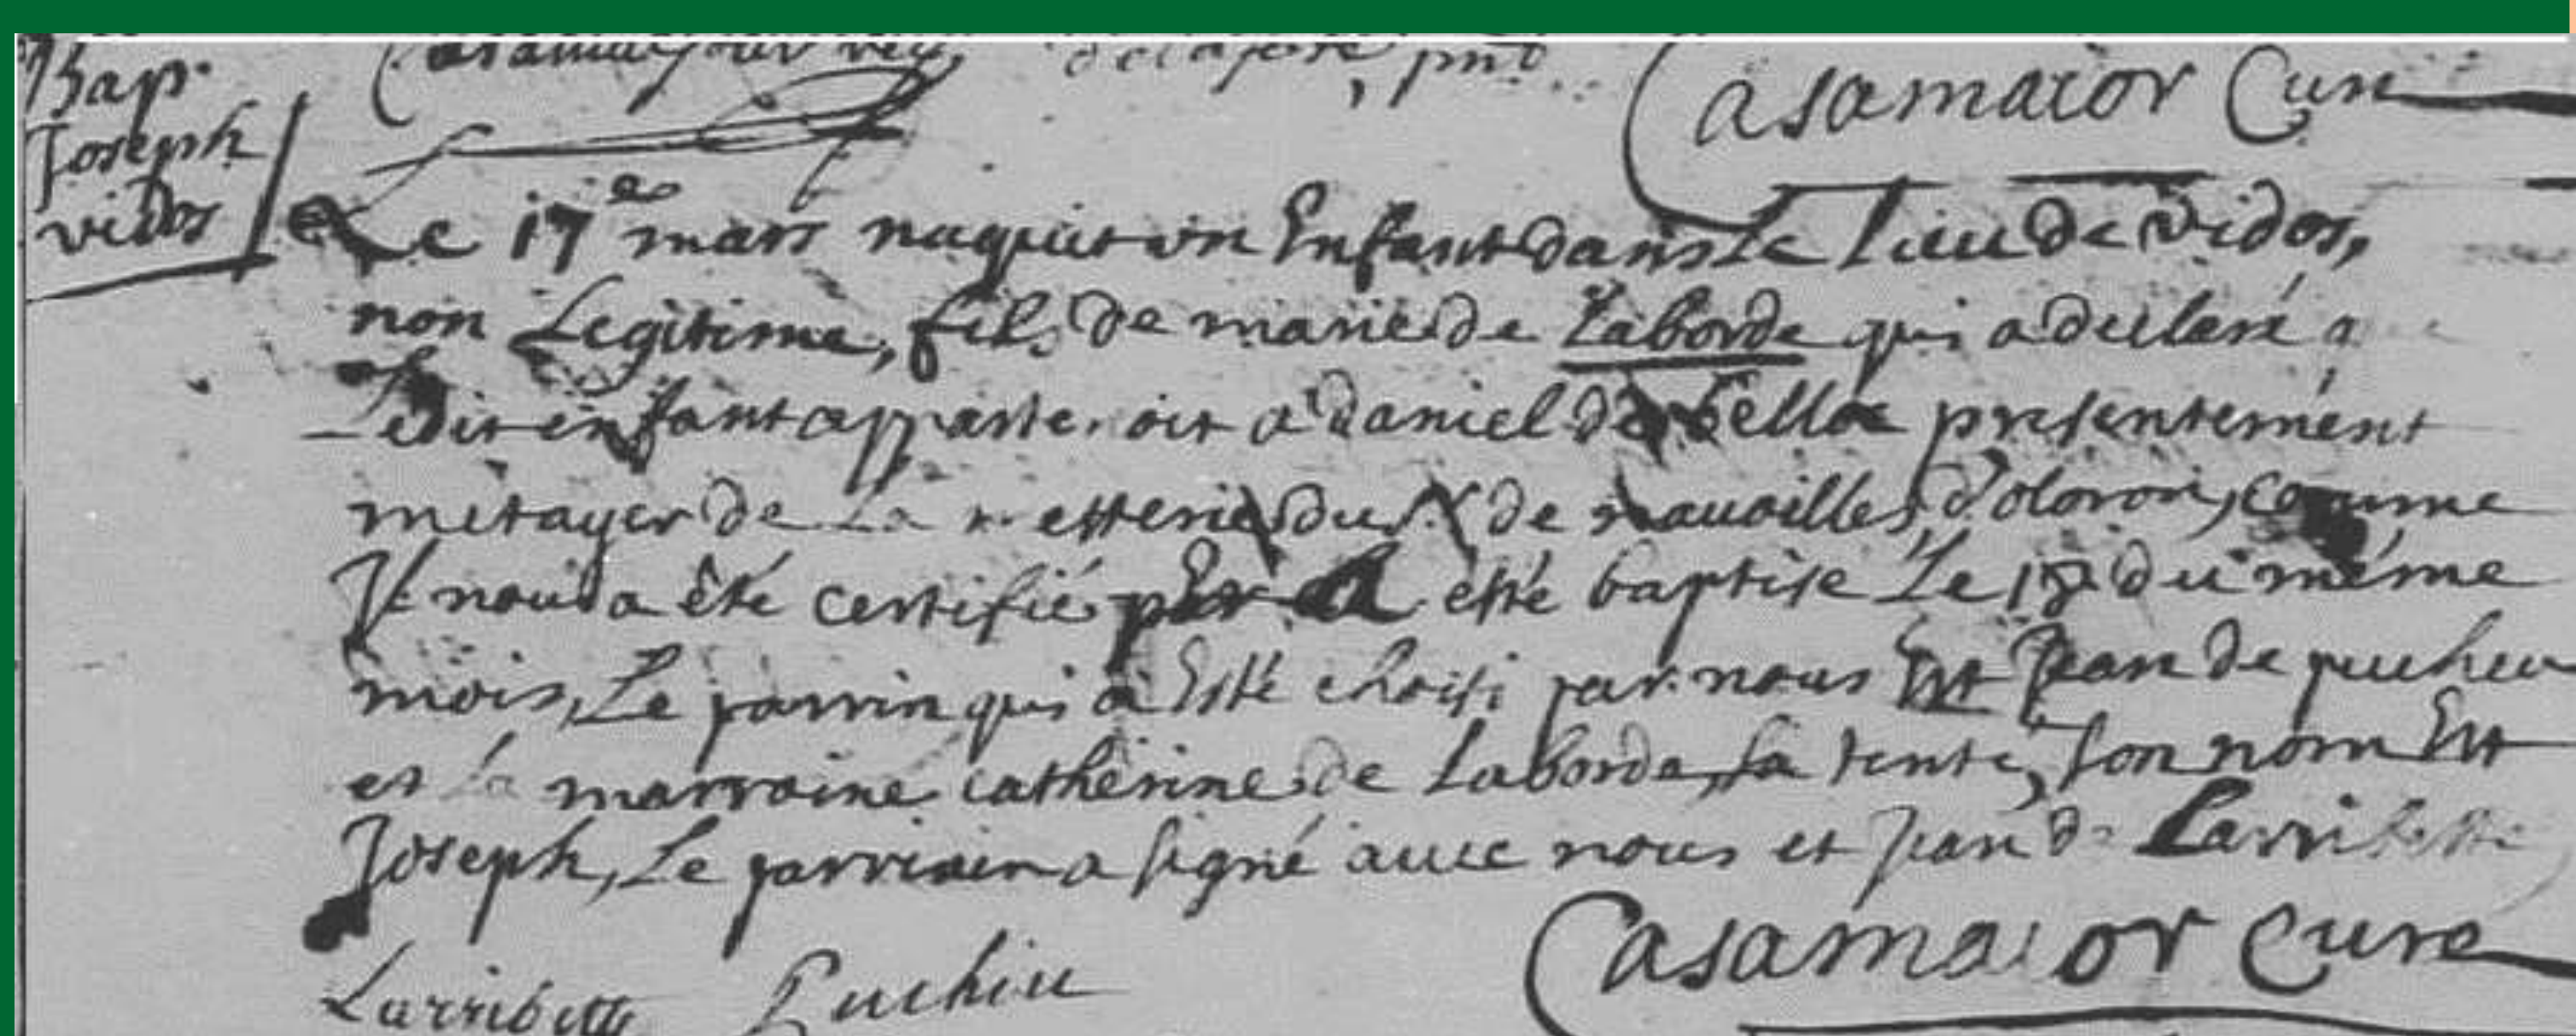 Bap.
Joseph
vidos
Casamaior Cure
Le 17e mars naquit un Enfant dans Le lieu de vidos,
non Legitime, fils de marie de Laborde qui a declaré
Ledit enfant appartenoit a daniel de belloc presentement
metayer de La metterie du de nauailles d'oloron, comme
Il nous a êté certifié esté baptise Le 18 du méme
mois, Le parrin qui a Esté choisi par nous Est Jean de pucheu
et la marraine catherine de Laborde, sa tente, son nom Est
Joseph, Le parrain a signé auec nous et Jean de Larribette
Casamaior Cure
Larribette Puchiu